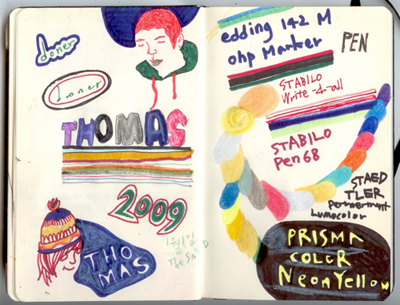 doner
doner
THOMAS
2009
THO
MAS
edding 142 M
ohp Marker
PEN
STABILO
Write-4-all
STABILO
Pen 68
STAED
TLER
Lumocolor
PRISMA
COLOR
Neon Yellow